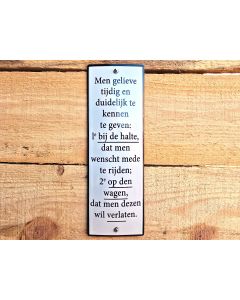 Men gelieve
tijdig en
duidelijk te
kennen
te geven:
1e bij de halte,
dat men
wenscht mede
te rijden;
2e op den
wagen,
dat men dezen
wil verlaten.